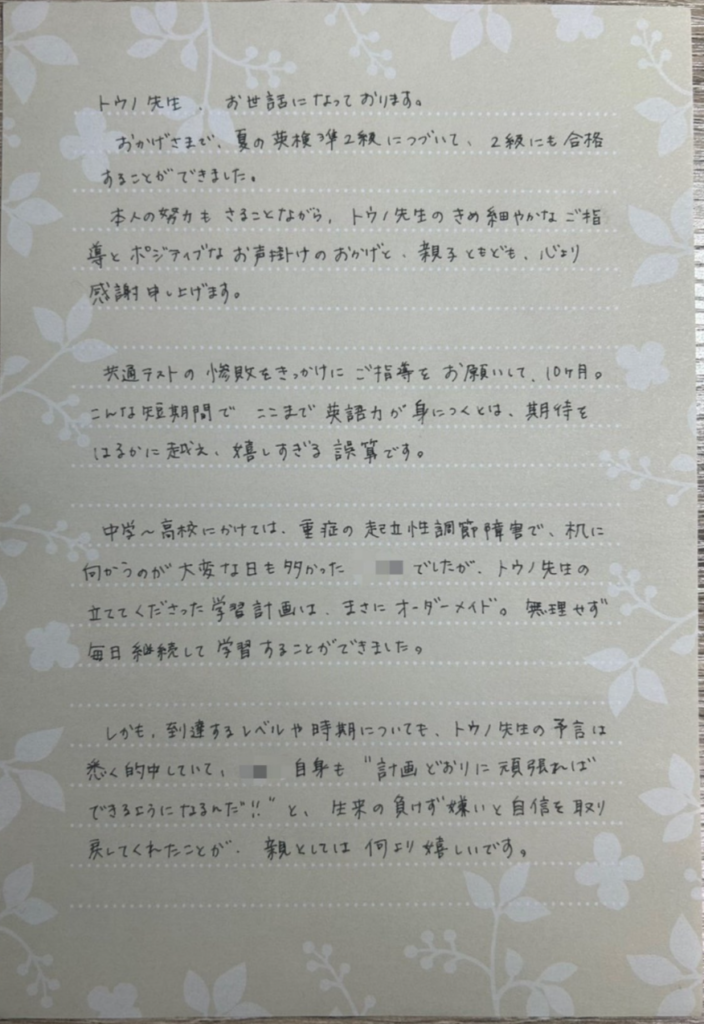 トウノ先生、お世話になっております。
おかげさまで、夏の英検準2級につづいて、2級にも合格
することができました。
本人の努力もさることながら、トウノ先生のきめ細やかなご指
導とポジティブなお声掛けのおかげと、親子ともども、心より
感謝申し上げます。
共通テストの惨敗をきっかけにご指導をお願いして、10ヶ月。
こんな短期間でここまで英語力が身につくとは、期待を
はるかに越え、嬉しすぎる誤算です。
中学〜高校にかけては、重症の起立性調節障害で、机に
向かうのが大変な日も多かった でしたが、トウノ先生の
立ててくださった学習計画は、まさにオーダーメイド。無理せず
毎日継続して学習することができました。
しかも、到達するレベルや時期についても、トウノ先生の予言は
悉く的中していて、 自身も"計画どおりに頑張れば
できるようになるんだ!!"と、生来の負けず嫌いと自信を取り
戻してくれたことが、親としては何より嬉しいです。